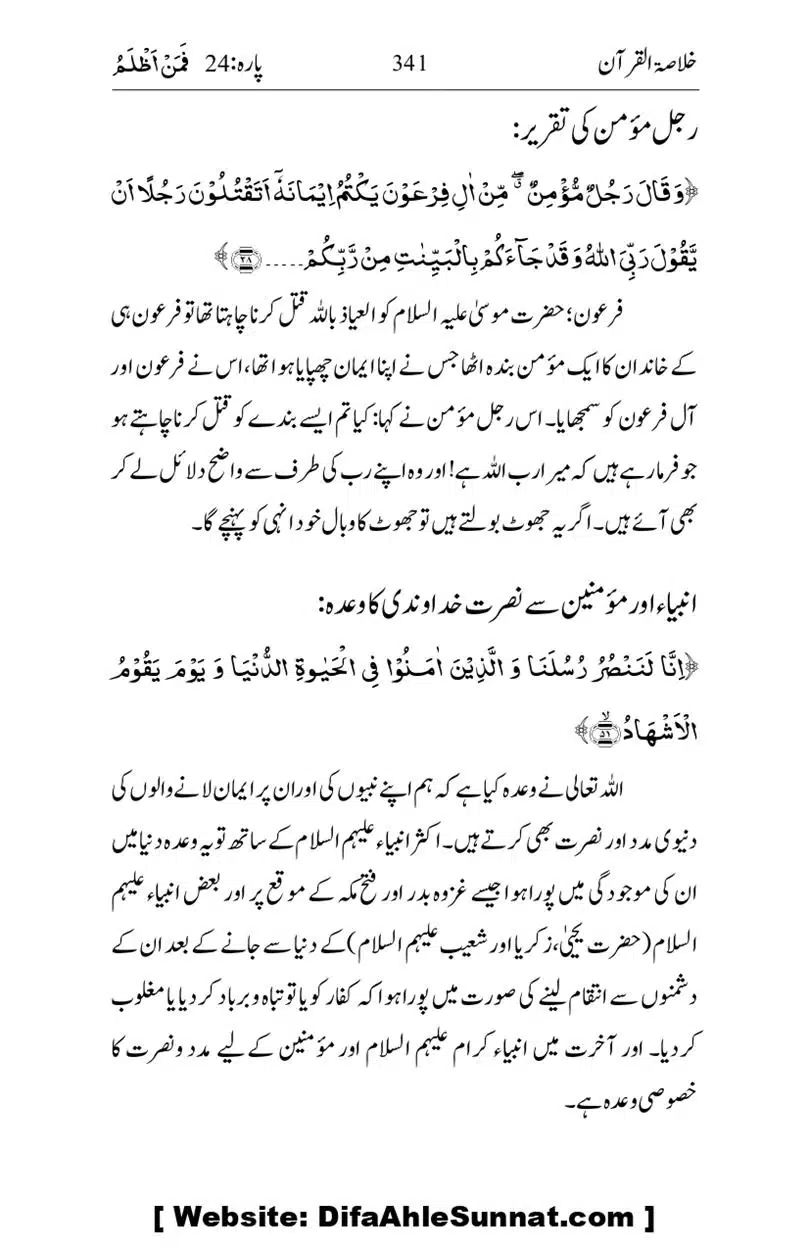 خلاصۃ القرآن 341 پارہ:24 فَمَنْ اَظْلَمُ
رجل مؤمن کی تقریر:
﴿وَ قَالَ رَجُلٌ مُّؤْمِنٌ ۖۗ مِّنْ اٰلِ فِرْعَوْنَ یَكْتُمُ اِیْمَانَهٗۤ اَتَقْتُلُوْنَ رَجُلًا اَنْ
یَّقُوْلَ رَبِّیَ اللّٰهُ وَ قَدْ جَآءَكُمْ بِالْبَیِّنٰتِ مِنْ رَّبِّكُمْ ..... ﴿۲۸﴾﴾
فرعون؛ حضرت موسیٰ علیہ السلام کو العیاذ باللہ قتل کرنا چاہتا تھا تو فرعون ہی
کے خاندان کا ایک مؤمن بندہ اٹھا جس نے اپنا ایمان چھپایا ہوا تھا، اس نے فرعون اور
آل فرعون کو سمجھایا۔ اس رجل مؤمن نے کہا: کیا تم ایسے بندے کو قتل کرنا چاہتے ہو
جو فرما رہے ہیں کہ میرا رب اللہ ہے! اور وہ اپنے رب کی طرف سے واضح دلائل لے کر
بھی آئے ہیں۔ اگر یہ جھوٹ بولتے ہیں تو جھوٹ کا وبال خود انہی کو پہنچے گا۔
انبیاء اور مؤمنین سے نصرت خداوندی کا وعدہ:
﴿اِنَّا لَنَنْصُرُ رُسُلَنَا وَ الَّذِیْنَ اٰمَنُوْا فِی الْحَیٰوةِ الدُّنْیَا وَ یَوْمَ یَقُوْمُ
الْاَشْهَادُ ﴿ۙ۵۱﴾﴾
اللہ تعالی نے وعدہ کیا ہے کہ ہم اپنے نبیوں کی اور ان پر ایمان لانے والوں کی
دنیوی مدد اور نصرت بھی کرتے ہیں۔ اکثر انبیاء علیہم السلام کے ساتھ تو یہ وعدہ دنیا میں
ان کی موجودگی میں پورا ہوا جیسے غزوہ بدر اور فتح مکہ کے موقع پر اور بعض انبیاء علیہم
السلام (حضرت یحییٰ، زکریا اور شعیب علیہم السلام) کے دنیا سے جانے کے بعد ان کے
دشمنوں سے انتقام لینے کی صورت میں پورا ہوا کہ کفار کو یا تو تباہ و برباد کر دیا یا مغلوب
کر دیا۔ اور آخرت میں انبیاء کرام علیہم السلام اور مؤمنین کے لیے مدد و نصرت کا
خصوصی وعدہ ہے۔
[ Website: DifaAhleSunnat.com ]